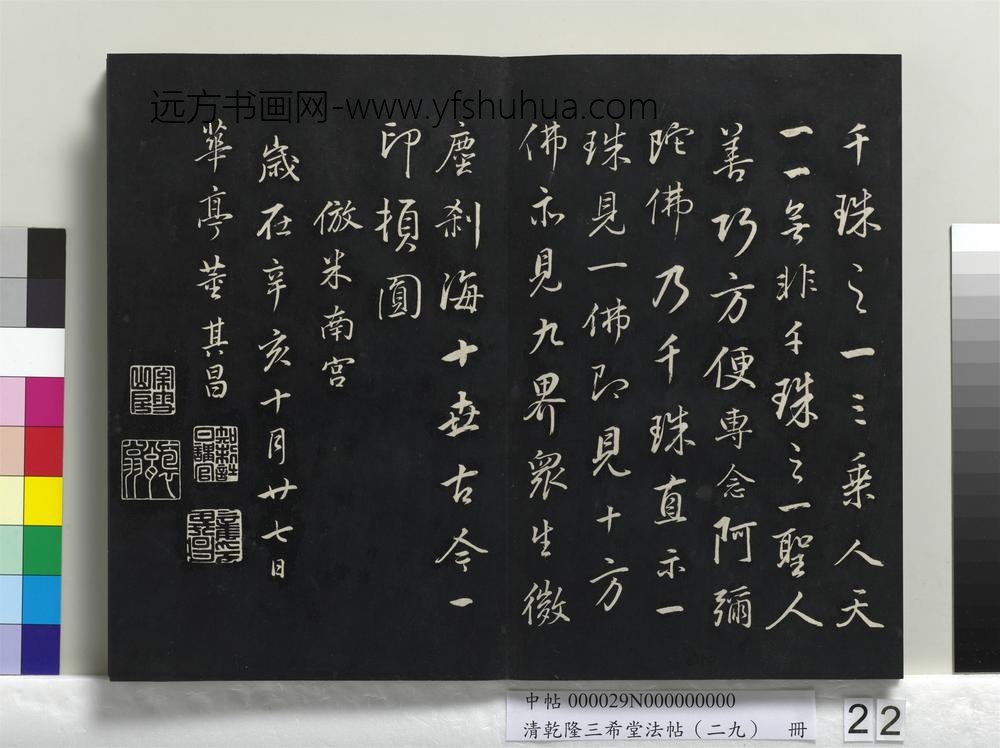 远方书画网-www.yfshuhua.com
千珠之一三乘人天
一一無非千珠之一聖人
善巧方便專念阿彌
陀佛乃千珠直示一
珠見一佛即見十方
佛亦見九界眾生微
塵剎海十世古今一
印頓圓
倣米南宮
歲在辛亥十月廿七日
華亭董其昌
中帖 000029N000000000
清乾隆三希堂法帖（二九） 冊
22